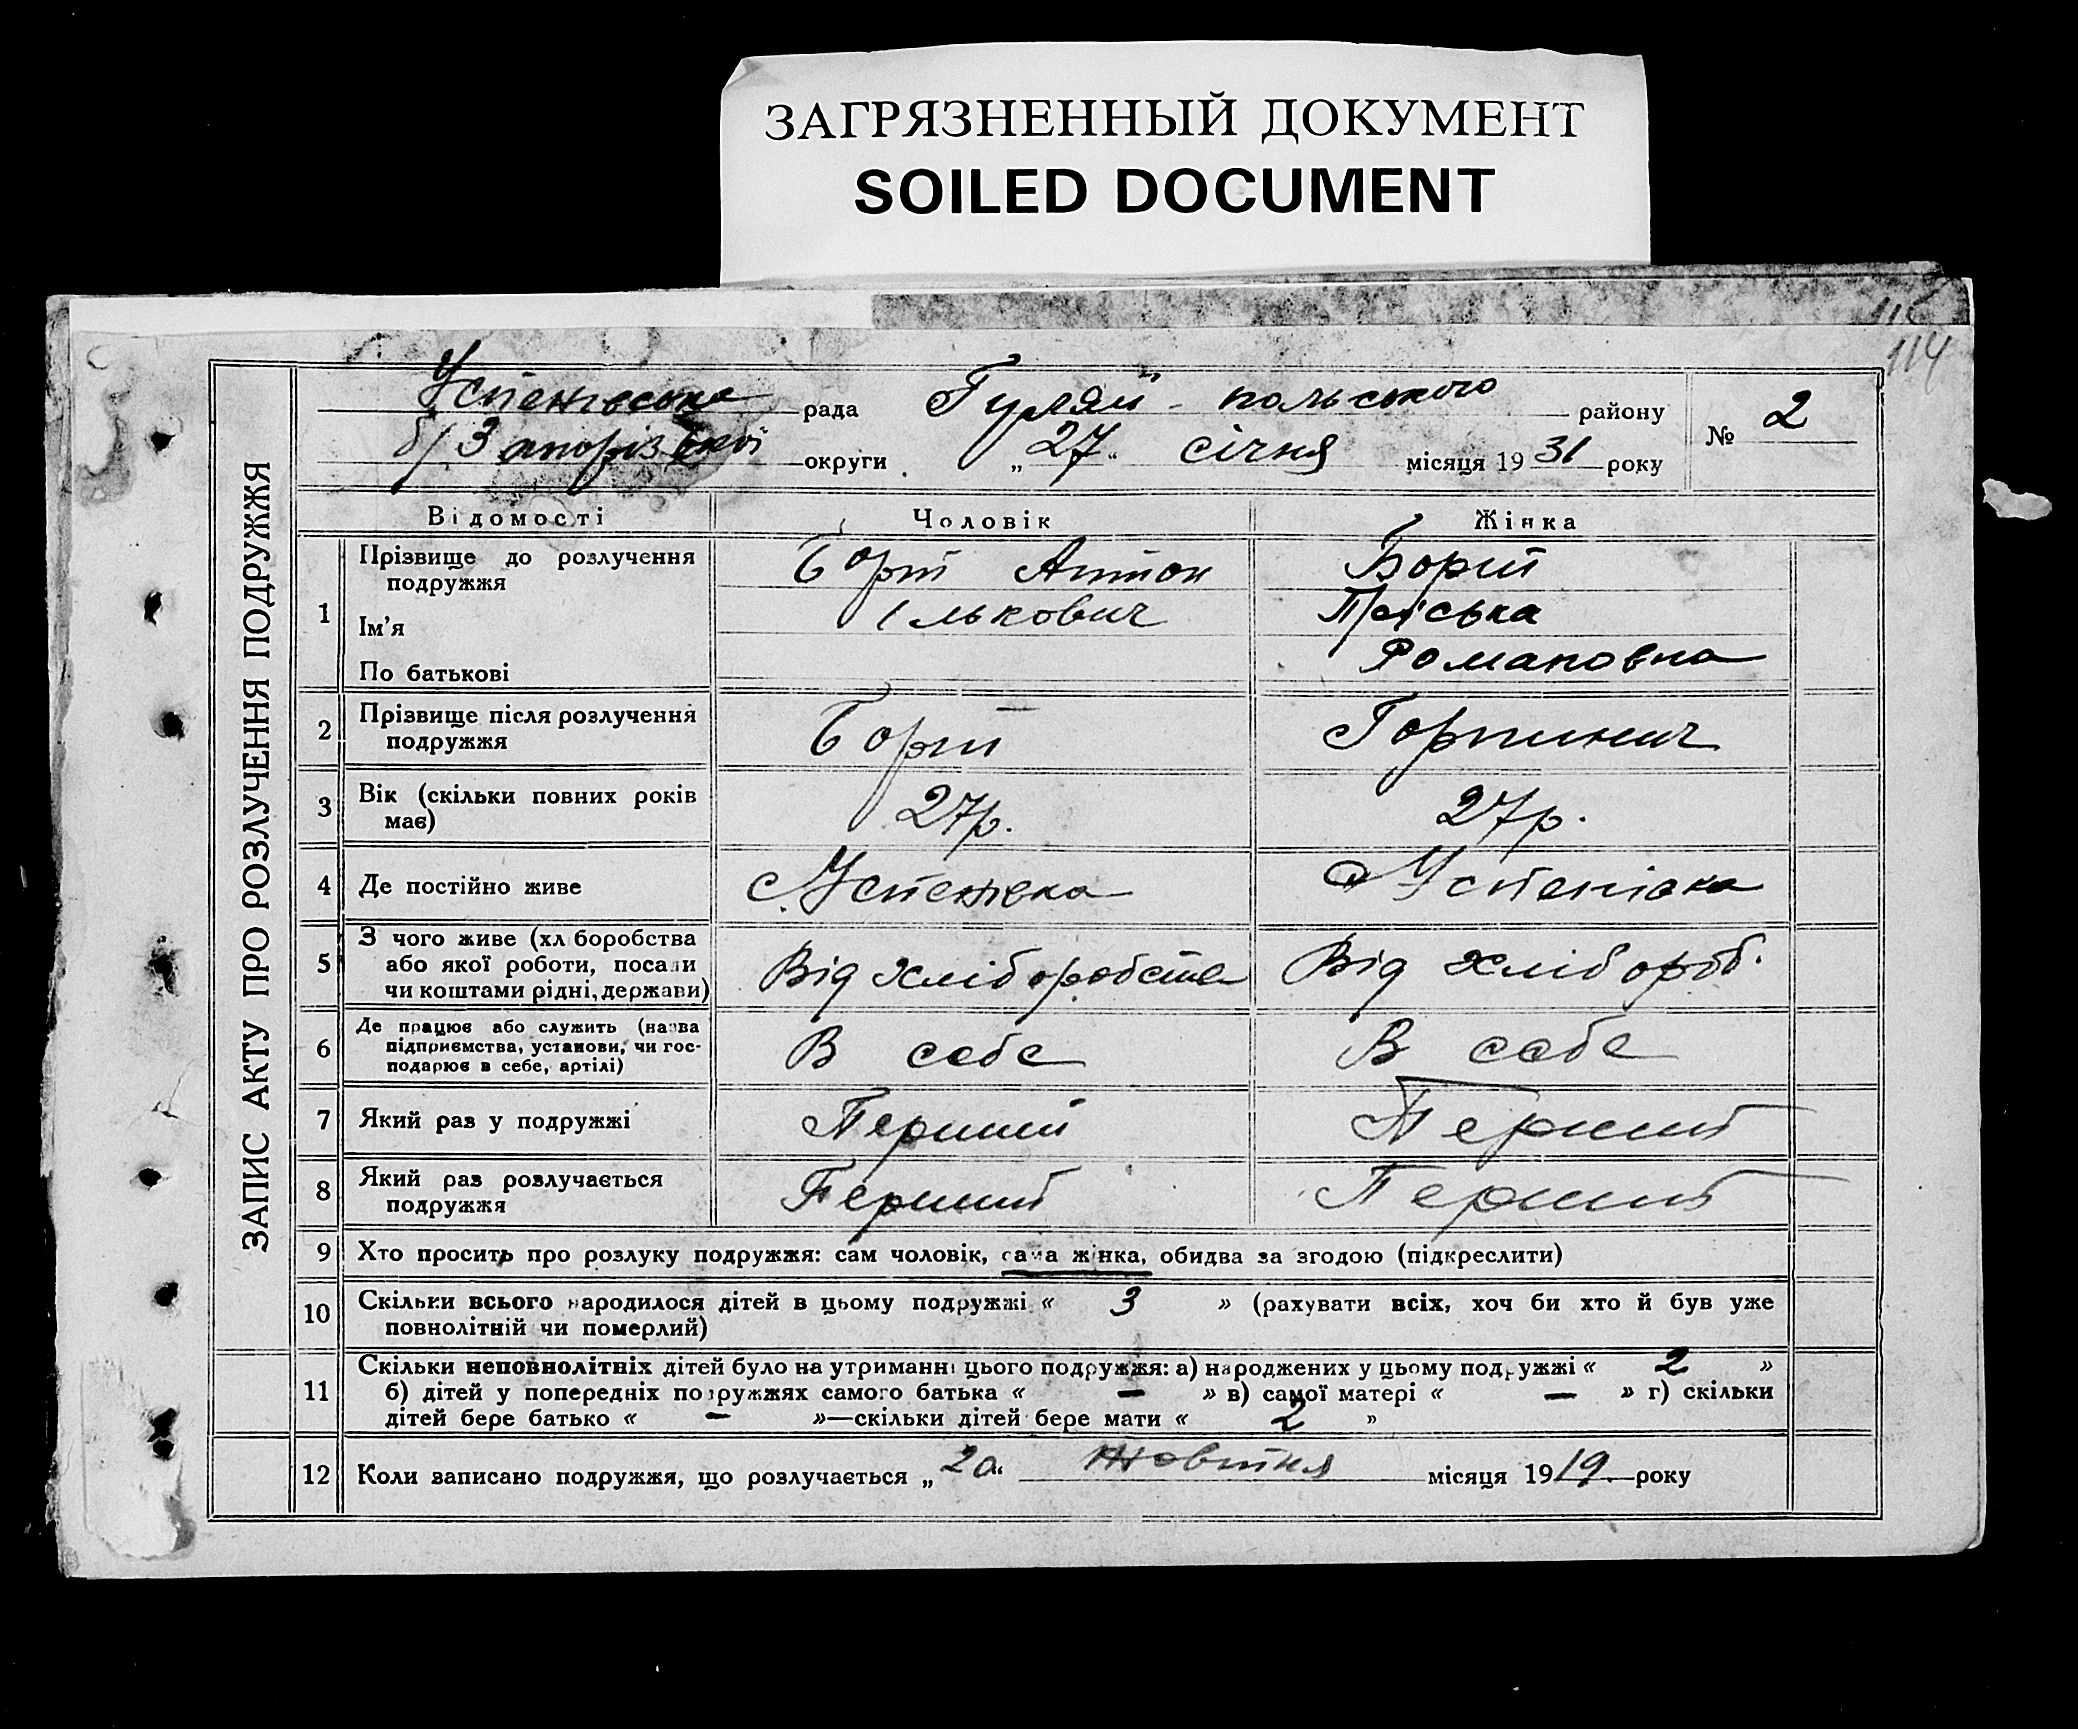 ЗАГРЯЗНЕННЫЙ ДОКУМЕНТ
SOILED DOCUMENT
114
ЗАПИС АКТУ ПРО РОЗЛУЧЕННЯ ПОДРУЖЖЯ
Успенівська рада Гуляй-польського району № 2
б/Запорізької округи „27“ січня місяця 1931 року
Відомості Чоловік Жінка
1 Прізвище до розлучення подружжя Борт Антон Борт
Ім'я Ількович Пріська
По батькові Романовна
2 Прізвище після розлучення подружжя Борт Горпинич
3 Вік (скільки повних років має) 27р. 27р.
4 Де постійно живе с. Успенівка с Успенівка
5 З чого живе (хліборобства або якої роботи, посади чи коштами рідні, держави) Від хліборобства Від хлібороб.
6 Де працює або служить (назва підприємства, установи, чи господарює в себе, артілі) В себе В себе
7 Який раз у подружжі Перший Перший
8 Який раз розлучається подружжя Перший Перший
9 Хто просить про розлуку подружжя: сам чоловік, сама жінка, обидва за згодою (підкреслити)
10 Скільки всього народилося дітей в цьому подружжі « 3 » (рахувати всіх, хоч би хто й був уже
повнолітній чи померлий)
11 Скільки неповнолітніх дітей було на утриманні цього подружжя: а) народжених у цьому подружжі « 2 »
б) дітей у попередніх подружжях самого батька « — » в) самої матері « — » г) скільки
дітей бере батько « — »—скільки дітей бере мати « 2 »
12 Коли записано подружжя, що розлучається „ “ Жовтня місяця 1919. року